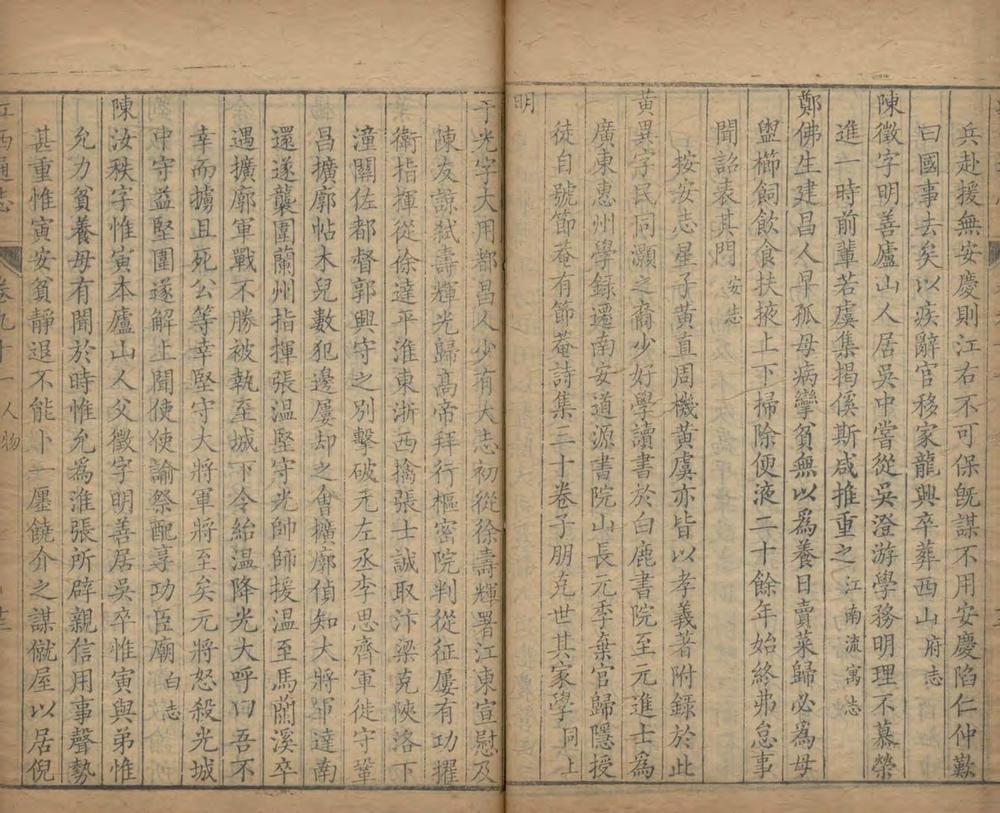 兵赴援無安慶則江右不可保旣謀不用安慶陷仁仲歎
曰國事去矣以疾辭官移家龍興卒葬西山府志
陳徵字明善廬山人居吳中嘗從吳澄游學務明理不慕榮
進一時前輩若虞集揭傒斯咸推重之江南流寓志
鄭佛生建昌人早孤母病攣貧無以爲養日賣菜歸必爲母
盥櫛飼飲食扶掖上下掃除便液二十餘年始終弗怠事
聞詔表其門安志
按安志星子黃直周機黃虞亦皆以孝義著附錄於此
黃異字民同灝之裔少好學讀書於白鹿書院至元進士爲
廣東惠州學録遷南安道源書院山長元季棄官歸隱授
徒自號節菴有節菴詩集三十卷子朋克世其家學同上
明
于光字大用都昌人少有大志初從徐壽輝署江東宣慰及
陳友諒弒壽輝光歸高帝拜行樞密院判從征屢有功擢
衛指揮從徐達平淮東浙西擒張士誠取汴梁克陝洛下
潼關佐都督郭興守之別擊破元左丞李思齊軍徙守鞏
昌擴廓帖木兒數犯邊屢却之會擴廓偵知大將軍達南
還遂襲圍蘭州指揮張温堅守光帥師援温至馬蘭溪卒
遇擴廓軍戰不勝被執至城下令紿温降光大呼曰吾不
幸而擄且死公等幸堅守大將軍將至矣元將怒殺光城
中守益堅圍遂解上聞使使諭祭配享功臣廟白志
陳汝秩字惟寅本廬山人父徵字明善居吳卒惟寅與弟惟
允力貧養母有聞於時惟允爲淮張所辟親信用事聲勢
甚重惟寅安貧靜退不能卜一廛饒介之謀僦屋以居倪
江西通志 卷九十一 人物